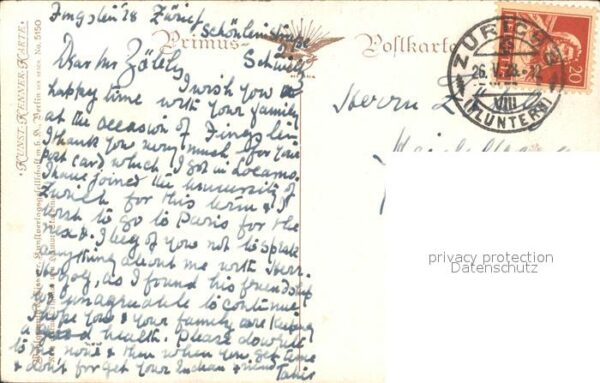 Pfingsten 28 Zürich
Schönleinstraße
Schweiz
Primus-
Postkarte
Dear Mr
I wish you a
happy time with your family
at the occasion of Pfingsten
I thank you very much for your
post card which I got in Locarno.
I have joined the university of
Zurich for this term & I
wish to go to Paris for the
next. I beg of you not to speak
anything about me with Herr.
as I found his friendship
too unagreeable to continue
I hope you & your family are keeping
a good health. Please do write
to me now & then when you get time
& don't for get your Indian friend
Herrn
ZÜRICH
26.V.28
VIII
(FLUNTERN)
20
KUNST-KENNER-KARTE
No. 5150
privacy protection
Datenschutz